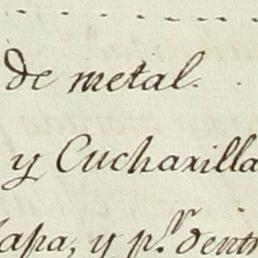 de metal.
y Cucharilla
lapa, y p.r dentr